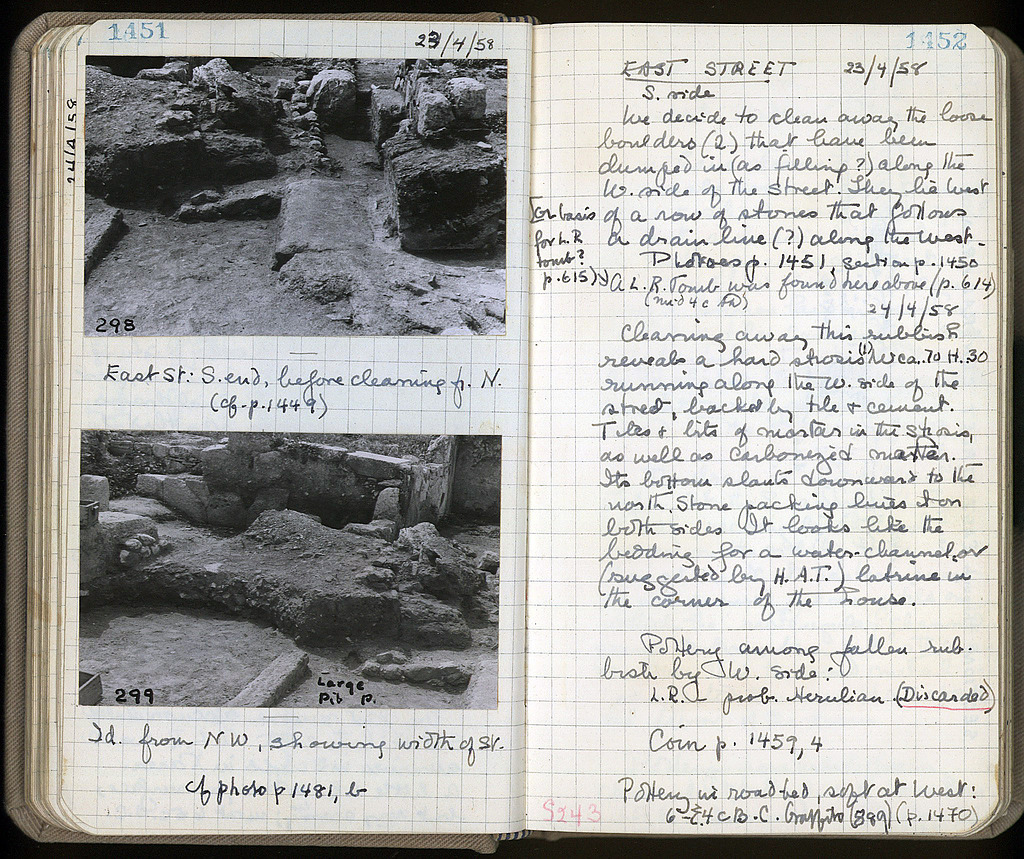 1451
23/4/58
24/4/58
298
East St: S. end, before cleaning fr. N.
(cf. p. 1449)
299
Large
Pit p.
Id. from NW, showing width of St.
cf photo p 1481, b
1452
EAST STREET 23/4/58
S. side
We decide to clean away the loose
boulders (2) that have been
dumped in (as filling?) along the
W. side of the street. They lie West
of a row of stones that follows
a drain line (?) along the west.
(or basis
for L.R
tomb?
p. 615)
Photoes p. 1451, section p. 1450
A L.R. Tomb was found here above (p. 614)
(mid 4 c
24/4/58
Clearing away this rubbish
reveals a hard strosis (1) W ca. 70 H. 30
running along the W. side of the
street, backed by tile & cement.
Tiles & bits of mortar in the strosis,
as well as carbonized matter.
Its bottom slants downward to the
north. Stone packing lines it on
both sides. It looks like the
bedding for a water-channel, or
(suggested by H.A.T.) latrine in
the corner of the house.
Pottery among fallen rub-
bish by W. side:
L.R. prob. Herulian (Discarded)
Coin p. 1459, 4
Pottery in road-bed, soft at West:
S243
6-E.4 c B.C. Graffito (389) (p. 1470)